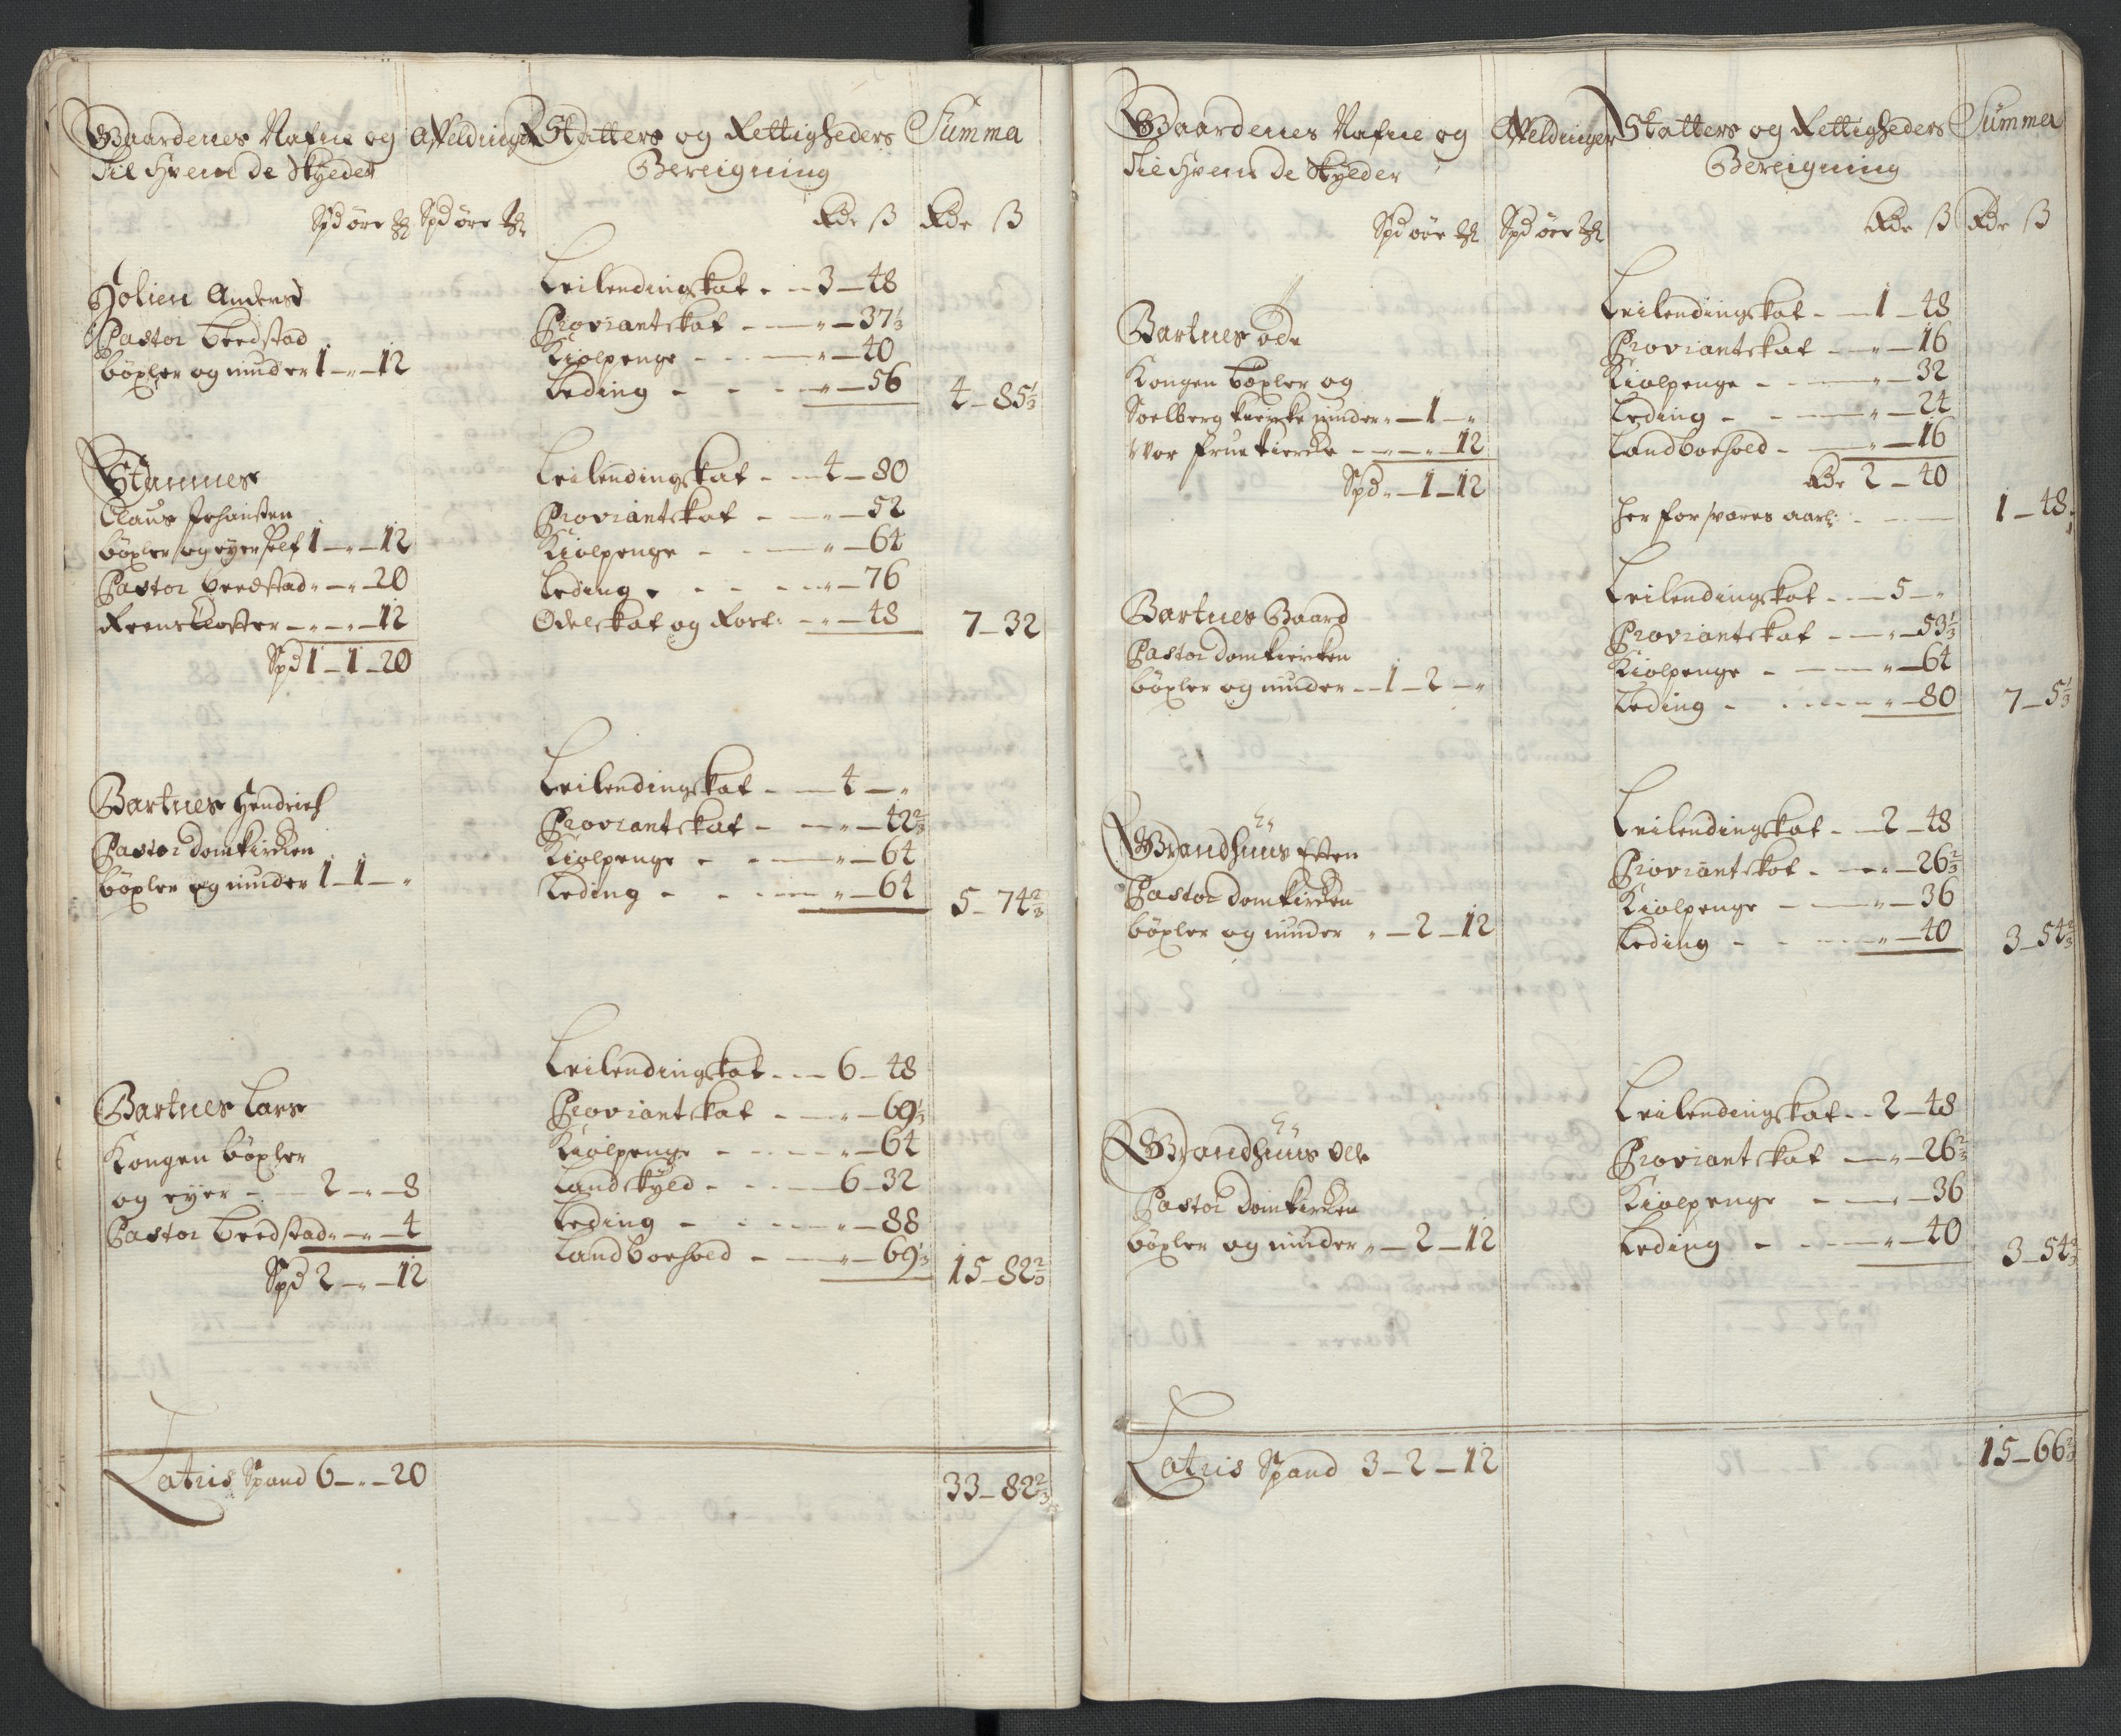 Gaardenes Nafne og Affeldninger Skatters og Rettigheders Summa
Til Hvem De Skylder Bereigning
Spd øre ℳ Spd øre ℳ Rdr ß Rdr ß
Holien Anders Leilendingskat - - 3 - 48
Pastor Beedstad Proviantskat - - " - 37⅓
bøxler og under 1 - " - 12 Kiølpenge - - " - 40
Leding - - - " - 56 4 - 85⅓
Stamnes Leilendingskat - - 4 - 80
Claus Johansen Proviantskat - - " - 52
bøxler og eyer self 1 - " - 12 Kiølpenge - - " - 64
Pastor Beedstad " - " - 20 Leding - - - " - 76
Reens Kloster - " - " - 12 Odelskat og Rost: - " - 48 7 - 32
Spd 1 - 1 - 20
Bartnes Hendrich Leilendingskat - - 4 - "
Pastor Domkircken Proviantskat - - " - 42⅔
bøxler og under 1 - 1 - " Kiølpenge - - " - 64
Leding - - - " - 64 5 - 74⅔
Bartnes Lars Leilendingskat - - - 6 - 48
Kongen bøxler Proviantskat - - " - 69⅓
og eyer - - 2 - " - 8 Kiølpenge - - - " - 64
Pastor Beedstad " - " - 4 Landskyld - - - 6 - 32
Spd 2 - " - 12 Leding - - - " - 88
Landboehold - - " - 69⅓ 15 - 82⅔
Latris Spand 6 - " - 20 33 - 82⅔
Gaardenes Nafne og Affeldninger Skatters og Rettigheders Summa
Til Hvem De Skylder Bereigning
Spd øre ℳ Spd øre ℳ Rdr ß Rdr ß
Bartnes øde Leilendingskat - - 1 - 48
Kongen bøxler og Proviantskat - - " - 16
Soelberg kierke under " - 1 - " Kiølpenge - - " - 32
Vor Frue Kiercke - " - " - 12 Leding - - " - 24
Spd " - 1 - 12 Landboehold - - " - 16
Rdr 2 - 40
her for svares aarl: - - - 1 - 48
Bartnes Gaard Leilendingskat - - 5 - "
Pastor Domkiercken Proviantskat - - " - 53⅓
bøxler og under - 1 - 2 - " Kiølpenge - - " - 64
Leding - - - " - 80 7 - 5⅓
Brandhuus Esten Leilendingskat - - 2 - 48
Pastor Domkircken Proviantskat - - " - 26⅔
bøxler og under " - 2 - 12 Kiølpenge - - " - 36
Leding - - - " - 40 3 - 54⅔
Brandhuus Olle Leilendingskat - - 2 - 48
Pastor Domkircken Proviantskat - " - 26⅔
bøxler og under " - 2 - 12 Kiølpenge - - " - 36
Leding - - - " - 40 3 - 54⅔
Latris Spand 3 - 2 - 12 15 - 66⅔